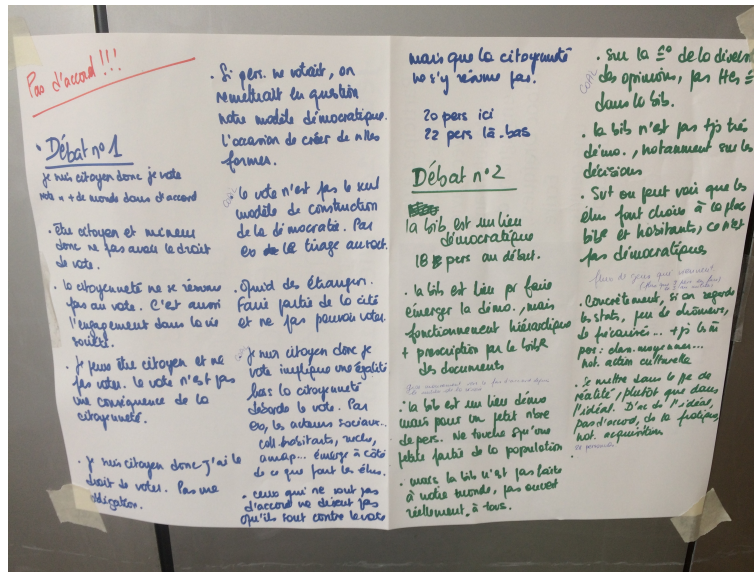 Pas d'accord !!!
• Débat n°1
Je suis citoyen donc je vote
+ de monde dans d'accord
• Être citoyen et mineur
donc ne pas avoir le droit
de vote.
• la citoyenneté ne se résume
pas au vote. C'est aussi
l'engagement dans la vie
• Je peux être citoyen et ne
pas voter. le vote n'est pas
une conséquence de la
citoyenneté.
• Je suis citoyen donc j'ai le
droit de voter. Pas une
obligation.
• Si pers. ne votait, on
remettrait en question
notre modèle démocratique.
l'occasion de créer de nlles
formes.
• le vote n'est pas le seul
modèle de construction
de la démocratie. Par
ex le tirage au sort.
• Quid des étrangers.
Faire partie de la cité
et ne pas pouvoir voter.
• Je suis citoyen donc je
vote implique une égalité
la citoyenneté
déborde le vote. Par
ex, les acteurs sociaux...
coll. habitants,
amap... émerge à côté
de ce que font les élus.
• ceux qui ne sont pas
d'accord ne disent pas
qu'ils sont contre le vote
mais que la citoyenneté
ne s'y résume pas.
20 pers ici
22 pers là-bas
Débat n°2
la bib est un lieu
démocratique
18 pers au début.
• la bib est lieu pr faire
émerger la démo., mais
fonctionnement hiérarchique
+ prescription par le
des documents
• la bib est un lieu démo
mais pour un petit nbre
de pers. Ne touche qu'une
petite partie de la population
• mais la bib n'est pas faite
à notre monde, pas ouvert
réellement à tous.
• sur la de la diversité
des opinions, pas
dans la bib.
• la bib n'est pas tjs très
démo., notamment sur les
décisions
• Svt on peut voir que les
élus font choix à la place
et habitants, ce n'est
pas démocratique
• Concrètement, si on regarde
les stats, peu de chômeurs,
de précaires... + tjs la m
pers: class. moyenne...
not. action culturelle
• Se mettre dans le de
réalité, plutôt que dans
l'idéal. de l'idéal,
pas d'accord, ds la pratique,
not. acquisition